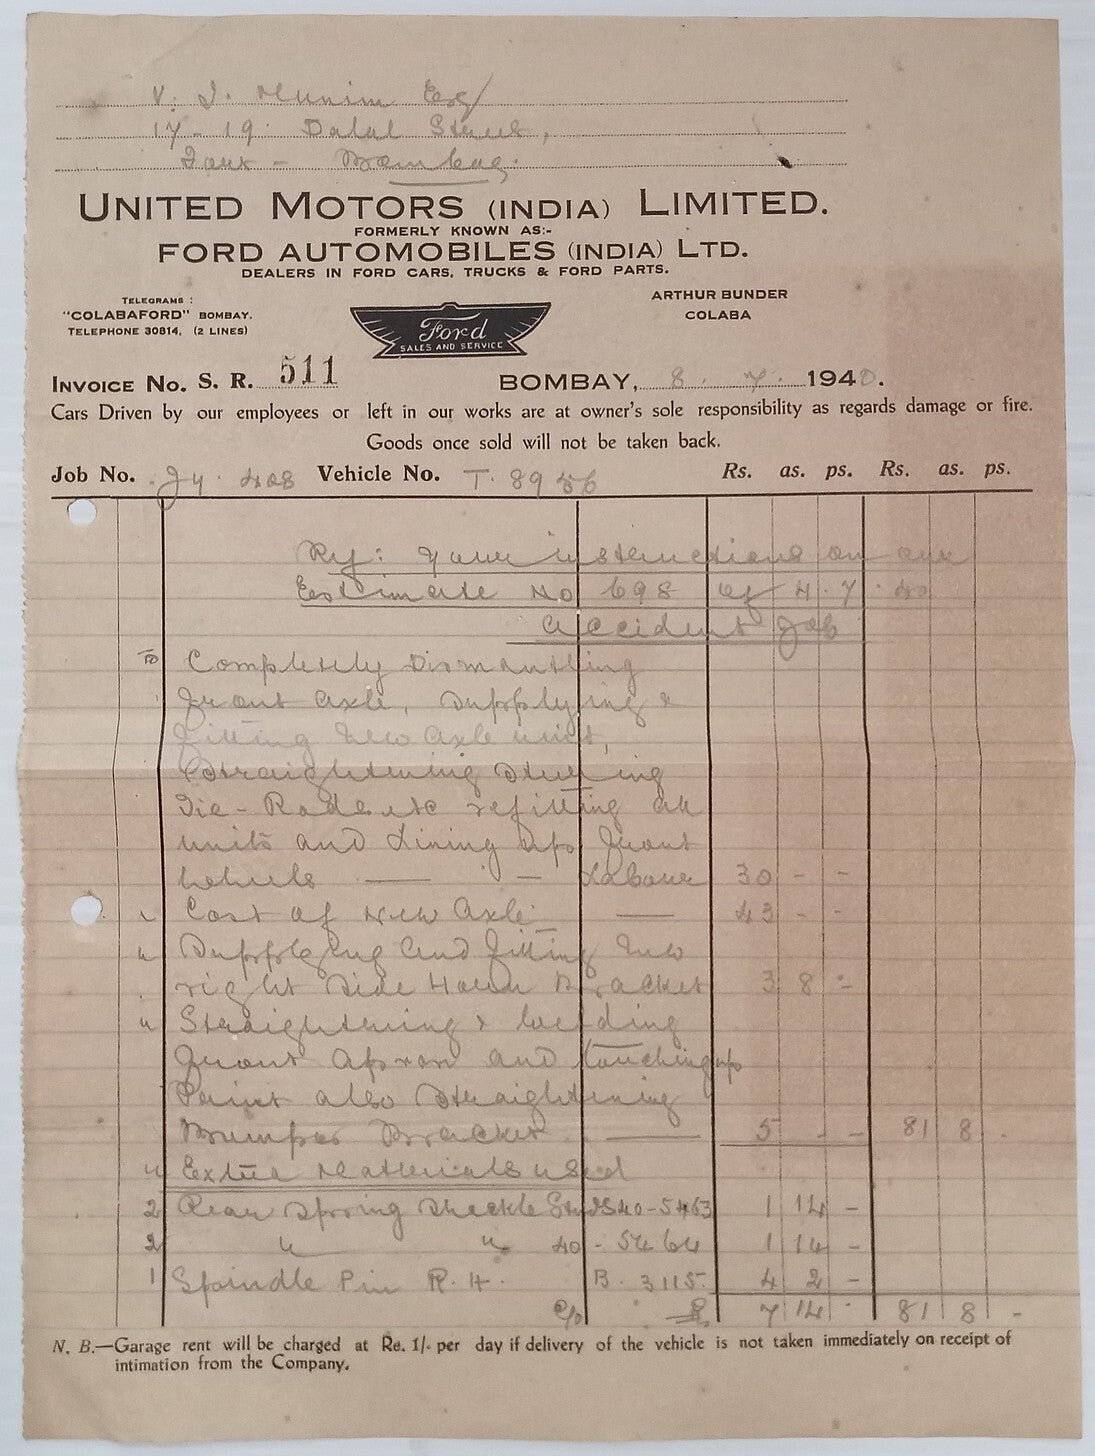 V. J. Munim Esq/
17-19 Dalal Street,
Fort - Bombay.
UNITED MOTORS (INDIA) LIMITED.
FORMERLY KNOWN AS:-
FORD AUTOMOBILES (INDIA) LTD.
DEALERS IN FORD CARS, TRUCKS & FORD PARTS.
TELEGRAMS :
"COLABAFORD" BOMBAY.
TELEPHONE 30814, (2 LINES)
Ford
SALES AND SERVICE
ARTHUR BUNDER
COLABA
INVOICE NO. S. R. 511 BOMBAY, 8. 7. 1940.
Cars Driven by our employees or left in our works are at owner's sole responsibility as regards damage or fire.
Goods once sold will not be taken back.
Job No. Jy. 408 Vehicle No. T. 8956 Rs. as. ps. Rs. as. ps.
Ref: your instructions on our
Estimate No 698 of 4.7.40
Accident Job
To Completely Dismantling
front Axle, Supplying &
fitting New Axle unit,
Straightening Steering
Tie-Rods etc refitting all
units and Lining up front
wheels — Labour 30 - -
" Cost of New Axle — 43 - -
" Supplying and fitting New
right Side Horn Bracket 3 8 -
" Straightening & welding
front Apron and touching up
Paint also Straightening
Bumper Bracket — 5 - - 81 8 -
" Extra Materials used
2 Rear Spring Shackle Studs 40-5463 1 14 -
2 " " 40-5464 1 14 -
1 Spindle Pin R.H. B. 3115. 4 2 -
C/o 7 14 - 81 8 -
N. B.—Garage rent will be charged at Re. 1/- per day if delivery of the vehicle is not taken immediately on receipt of
intimation from the Company.